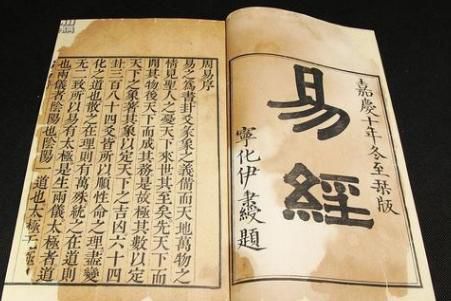 嘉慶十年冬至栞版
易經
寧化伊秉綬題
周易序
易之爲書卦爻彖象之義備而天地萬物之
情見聖人之憂天下來世其至矣先天下而
開其物後天下而成其務是故極其數以定
天下之象著其象以定天下之吉凶六十四
卦三百八十四爻皆所以順性命之理盡變
化之道也散之在理則有萬殊統之在道則
无二致所以易有太極是生兩儀太極者道
也兩儀者陰陽也陰陽 道也太極